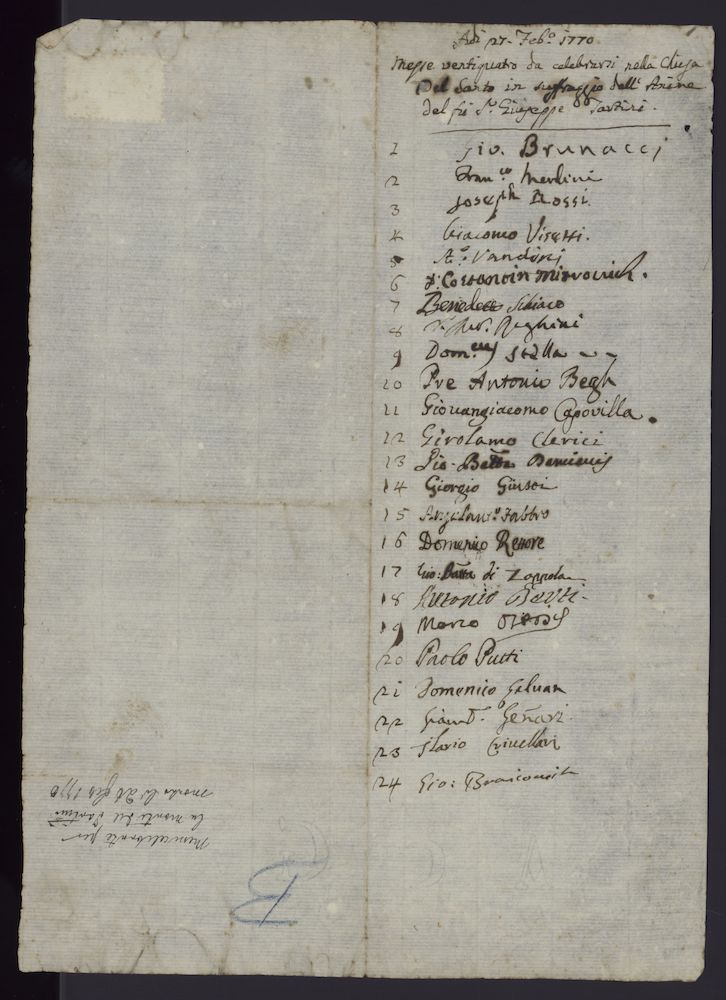 Adì 27. Feb.º 1770
Messe ventiquatro da celebrarsi nella Chiesa
Del Santo in suffraggio dell' Anima
del fù Sr. Giuseppe Tartini.
1 Gio. Brunacci
2 Fran.co Merlini
3 Joseph Rossi.
4 Giacomo Visetti.
5 A.º Vandini
6 Costantin Mirovich.
7 Benedetto Schiavo
8 Reghini
9 Dom.co Stella
10 Pre Antonio Begh
11 Giovangiacomo Capovilla.
12 Girolamo Clerici
13 Gio. Batta
14 Giorgio
15 Fabbro
16 Domenico Rettore
17 Gio: Batta di Zoppola
18 Antonio
19 Marco
20 Paolo Putti
21 Domenico Galvan
22 Genari.
23 Ilario Crivellari
24 Gio:
Messe celebrate per
la morte del Tartini
morto li 26 feb 1770
B